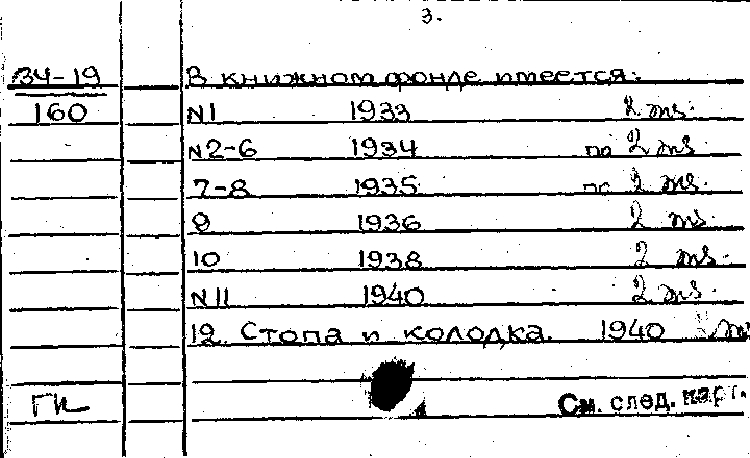 3.
34-19 В книжном фонде имеется:
160 N1 1933 2 экз.
N2-6 1934 по 2 экз.
7-8 1935 по 2 экз.
9 1936 2 экз.
10 1938 2 экз.
N11 1940 2 экз.
12. Стопа и колодка. 1940 экз
ГИ См. след. карт.